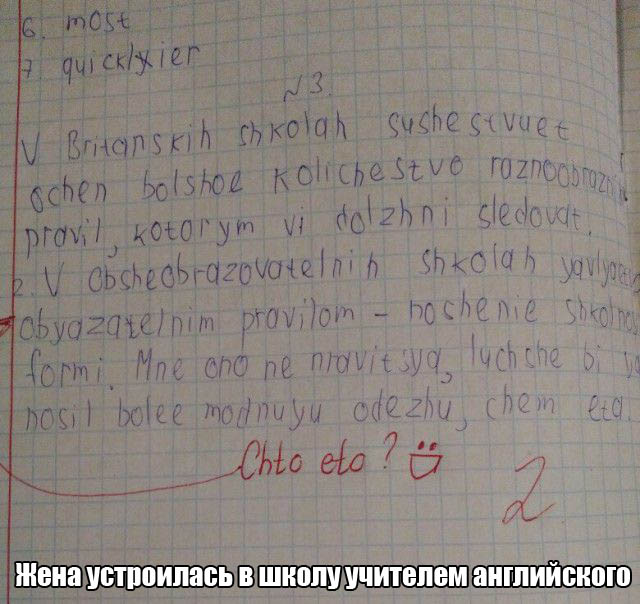 6. most
7 quicklyier
N3.
V Britanskih shkolah sushestvuet
ochen bolshoe kolichestvo
pravil, kotorym vi dolzhni sledovat.
2. V obsheobrazovatelnih shkolah
obyazatelnim pravilom - noshenie
formi. Mne ono ne nravitsya, luchshe bi ya
nosil bolee modnuyu odezhu, chem eta.
Chto eto?
2
Жена устроилась в школу учителем английского